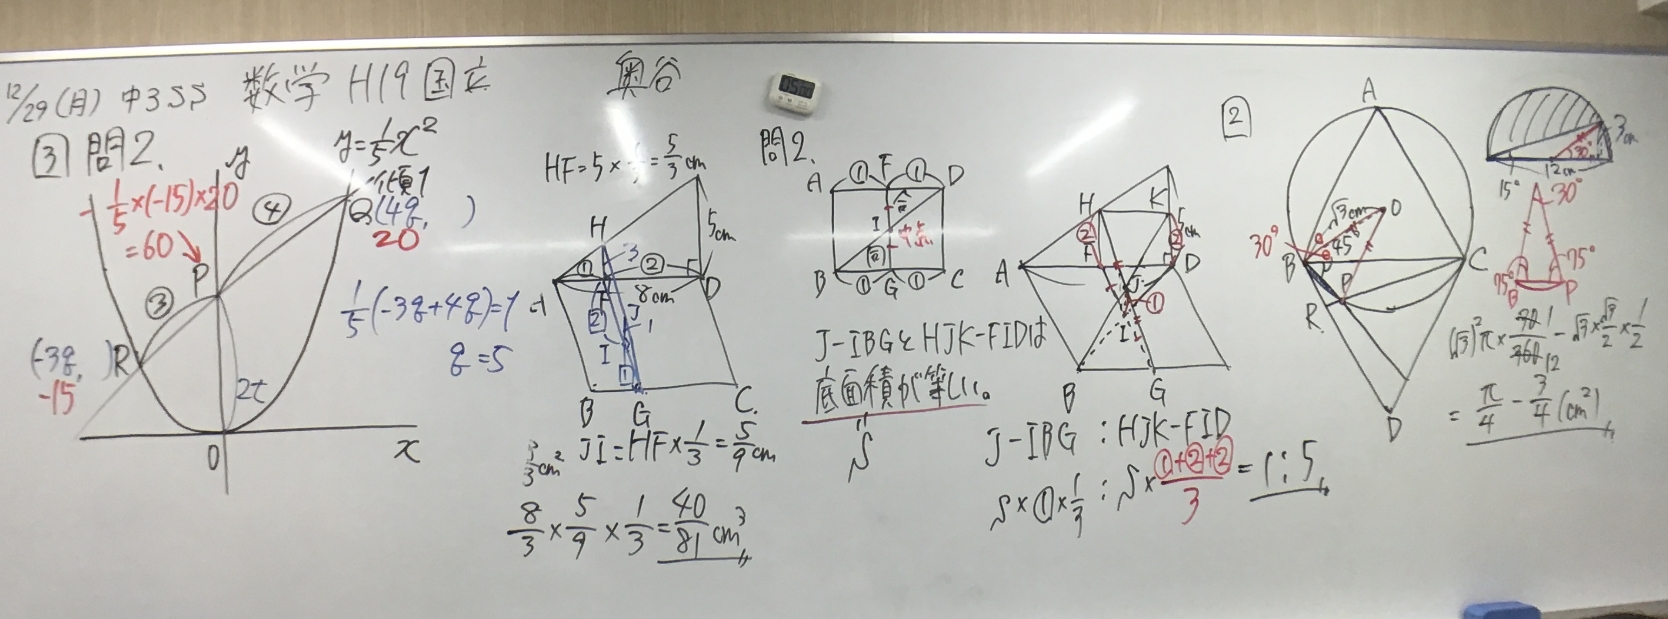 12/29(月) 中3SS 数学 H19 国立 奥谷
③ 問2.
y
y=1/5x²
傾1
-1/5×(-15)×20
=60
④
Q(4q, )
20
P
③
1/5(-3q+4q)=1
q=5
(-3q, )R
-15
2t
O
x
HF=5× =5/3cm
H
3
5cm
①
②
8cm
D
F
2
J
1
I
1
B
G
C.
JI=HF×1/3=5/9cm
8/3×5/9×1/3=40/81cm³
問2.
A
①
F
①
D
I
②
②
B
①
G
①
C
J-IBGとHJK-FIDは
底面積が等しい。
S
H
K
②
②
5cm
A
F
D
J
①
I
B
G
J-IBG : HJK-FID
S×①×1/3 : S×①+②+②/3 = 1:5
2
A
√3cm
O
30°
45°
B
C
P
R
D
3cm
30°
12cm
15°
30°
75°
75°
B
P
(√3)²π×30/360 1/12-√3×√3/2×1/2
=π/4-3/4(cm²)